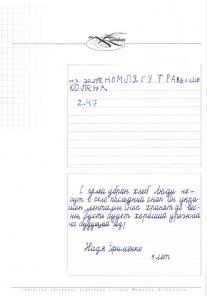 на поле НОМЛЯГУТРА
КОЛЕНА.
2.47
С поля убран хлеб. Люди не-
сут в село последний сноп. Он укра-
шен лентами. Сноп хранят до вес-
ны. Пусть будет хороший урожай
на будущий год!
Надя Ефименко
8 лет